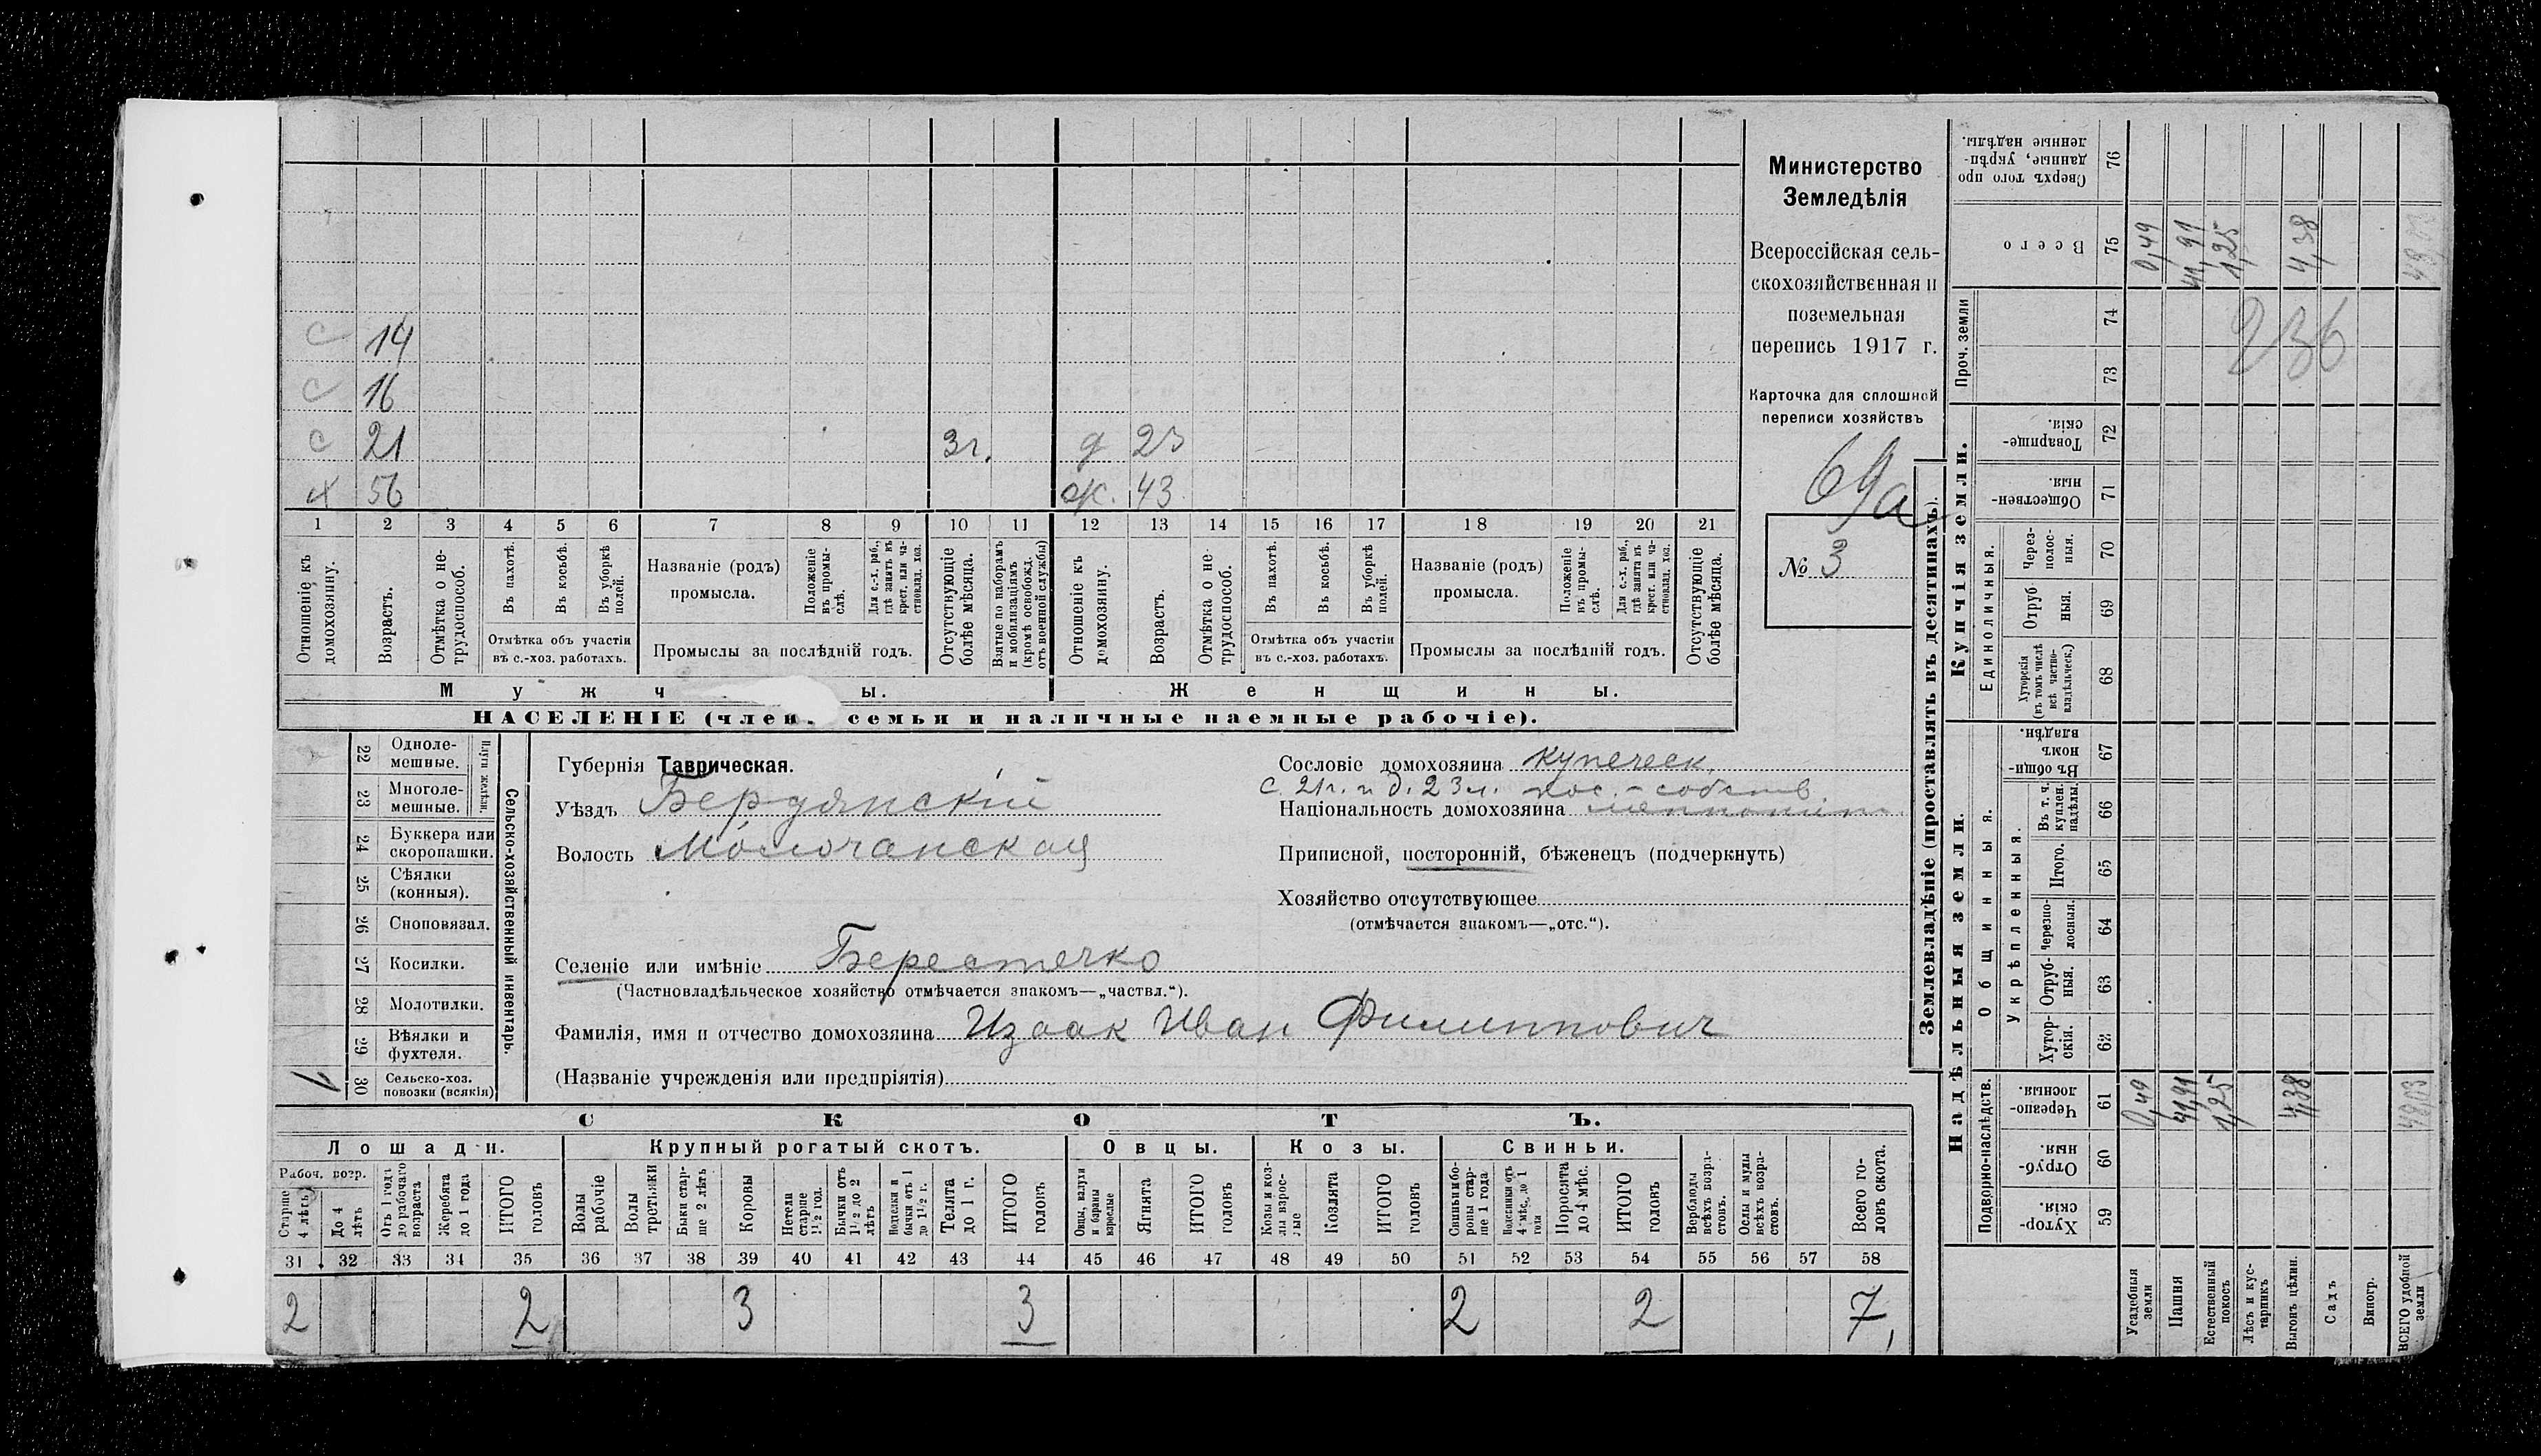 с 14
с 16
с 21 3 г. д 23
х 56 ж. 43
1 2 3 4 5 6 7 8 9 10 11 12 13 14 15 16 17 18 19 20 21
Отношеніе къ домохозяину.
Возрастъ.
Отмѣтка о не-трудоспособ.
Въ пахотѣ.
Въ косьбѣ.
Въ уборкѣ полей.
Отмѣтка объ участіи въ с.-хоз. работахъ.
Названіе (родъ) промысла.
Положеніе въ промы-слѣ.
Для с.-х. раб., гдѣ занятъ въ крест. или ча-стновлад. хоз.
Промыслы за послѣдній годъ.
Отсутствующіе болѣе мѣсяца.
Взятые по наборамъ и мобилизаціямъ (кромѣ освобожд. отъ военной службы)
Отношеніе къ домохозяину.
Возрастъ.
Отмѣтка о не-трудоспособ.
Въ пахотѣ.
Въ косьбѣ.
Въ уборкѣ полей.
Отмѣтка объ участіи въ с.-хоз. работахъ.
Названіе (родъ) промысла.
Положеніе въ промы-слѣ.
Для с.-х. раб., гдѣ занята въ крест. или ча-стновлад. хоз.
Промыслы за послѣдній годъ.
Отсутствующіе болѣе мѣсяца.
Муж ч ы. Женщины.
НАСЕЛЕНІЕ (член. семьи и наличные наемные рабочіе).
Министерство
Земледѣлія
Всероссійская сель-
скохозяйственная и
поземельная
перепись 1917 г.
Карточка для сплошной
переписи хозяйствъ
69а
№ 3
Сельско-хозяйственный инвентарь.
Плуги желѣзн.
22 Одноле-мешные.
23 Многоле-мешные.
24 Буккера или скоропашки.
25 Сѣялки (конныя).
26 Сноповязал.
27 Косилки.
28 Молотилки.
29 Вѣялки и фухтеля.
30 Сельско-хоз. повозки (всякія) 1
Губернія Таврическая.
Уѣздъ Бердянскій
Волость Молочанская
Селеніе или имѣніе Берестечко
(Частновладѣльческое хозяйство отмѣчается знакомъ—„частвл.“).
Фамилія, имя и отчество домохозяина Изаак Иван Филиппович
(Названіе учрежденія или предпріятія)
Сословіе домохозяина купеческ.
с. 21 г. и д. 23 л. пос. - собств.
Національность домохозяина меннонит
Приписной, посторонній, бѣженецъ (подчеркнуть)
Хозяйство отсутствующее
(отмѣчается знакомъ—„отс.“).
СКОТЪ.
Лошади. Крупный рогатый скотъ. Овцы. Козы. Свиньи.
Рабоч. возр.
Старше 4 лѣтъ
До 4 лѣтъ
Отъ 1 года до рабочаго возраста
Жеребята до 1 года
ИТОГО головъ
Волы рабочіе
Волы третьяки
Быки стар-ше 2 лѣтъ
Коровы
Нетели старше 1½ год.
Бычки отъ 1½ до 2 лѣтъ
Подтелки и бычки отъ 1 до 1½ г.
Телята до 1 г.
ИТОГО головъ
Овцы, валухи и бараны взрослые
Ягнята
ИТОГО головъ
Козы и коз-лы взрос-лые
Козлята
ИТОГО головъ
Свиньи и бо-ровы стар-ше 1 года
Подсвинки отъ 4 мѣс. до 1 года
Поросята до 4 мѣс.
ИТОГО головъ
Верблюды всѣхъ возра-стовъ.
Ослы и мулы всѣхъ возра-стовъ.
Всего го-ловъ скота.
31 32 33 34 35 36 37 38 39 40 41 42 43 44 45 46 47 48 49 50 51 52 53 54 55 56 57 58
2 2 3 3 2 2 7
Землевладѣніе (проставлять въ десятинахъ).
Надѣльныя земли. Купчія земли. Проч. земли
Подворно-наслѣдств. Общинныя. Единоличныя.
Укрѣпленныя.
59 Хутор-скія.
60 Отруб-ныя.
61 Черезпо-лосныя.
62 Хутор-скія.
63 Отруб-ныя.
64 Черезпо-лосныя.
65 Итого.
66 Въ т. ч. куплен. надѣлы.
67 Въ общи-номъ владѣн.
68 Хуторскія (въ томъ числѣ всѣ частно-владѣльческ.)
69 Отруб ныя.
70 Через-полос-ныя.
71 Обществен-ныя.
72 Товарище-скія.
73
74
75 Всего
76 Сверхъ того про данные, укрѣп-ленные надѣлы.
Усадебныя земли 0,49 0,49
Пашня 41,91 41,91
Естественный покосъ 1,25 1,25
Лѣсъ и кус-тарникъ
Выгонъ цѣлин. 4,38 4,38
Садъ
Виногр.
ВСЕГО удобной земли 48,03 48,03
236